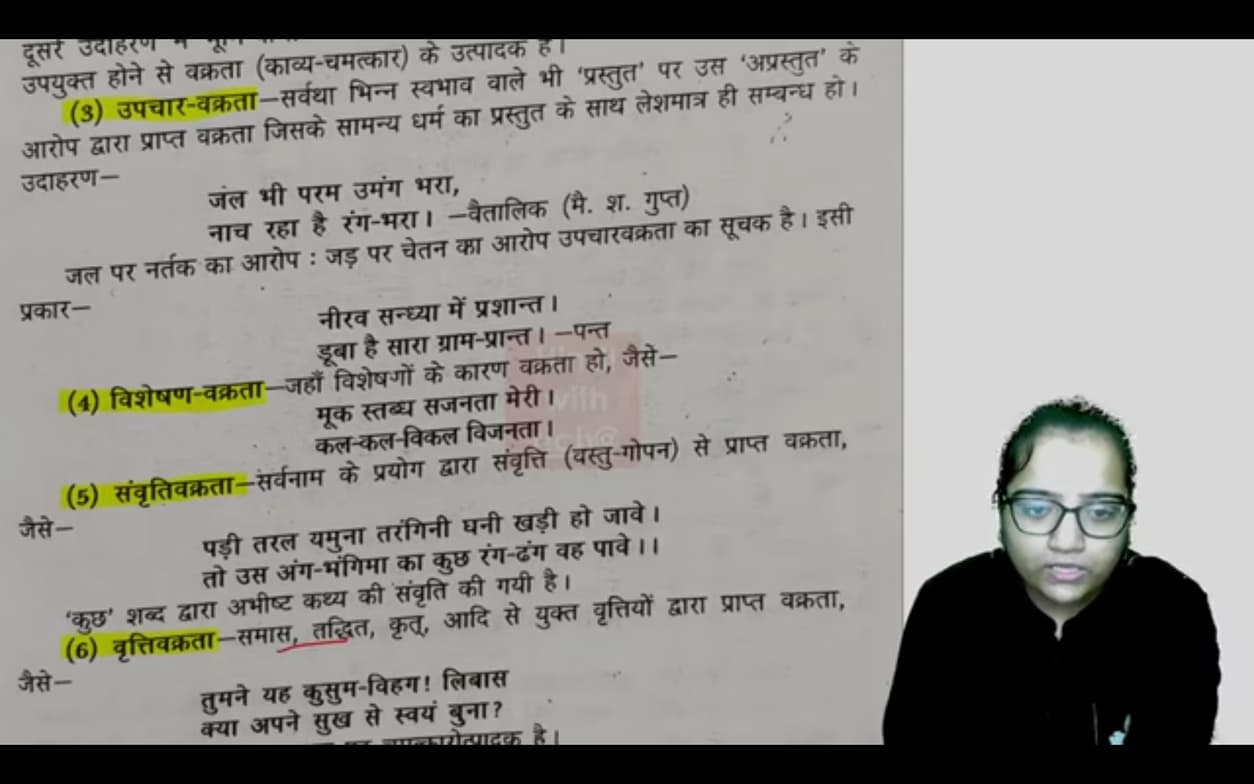 दूसरे उदाहरण में
उपयुक्त होने से वक्रता (काव्य-चमत्कार) के उत्पादक हैं।
(3) उपचार-वक्रता—सर्वथा भिन्न स्वभाव वाले भी ‘प्रस्तुत’ पर उस ‘अप्रस्तुत’ के
आरोप द्वारा प्राप्त वक्रता जिसके सामन्य धर्म का प्रस्तुत के साथ लेशमात्र ही सम्बन्ध हो।
उदाहरण—
जंल भी परम उमंग भरा,
नाच रहा है रंग-भरा। —वैतालिक (मै. श. गुप्त)
जल पर नर्तक का आरोप : जड़ पर चेतन का आरोप उपचारवक्रता का सूचक है। इसी
प्रकार—
नीरव सन्ध्या में प्रशान्त।
डूबा है सारा ग्राम-प्रान्त। —पन्त
(4) विशेषण-वक्रता—जहाँ विशेषणों के कारण वक्रता हो, जैसे—
मूक स्तब्ध सजनता मेरी।
कल-कल-विकल विजनता।
(5) संवृतिवक्रता—सर्वनाम के प्रयोग द्वारा संवृत्ति (वस्तु-गोपन) से प्राप्त वक्रता,
जैसे—
पड़ी तरल यमुना तरंगिनी घनी खड़ी हो जावे।
तो उस अंग-भंगिमा का कुछ रंग-ढंग वह पावे।।
‘कुछ’ शब्द द्वारा अभीष्ट कथ्य की संवृति की गयी है।
(6) वृत्तिवक्रता—समास, तद्धित, कृत्, आदि से युक्त वृत्तियों द्वारा प्राप्त वक्रता,
जैसे—
तुमने यह कुसुम-विहग! लिबास
क्या अपने सुख से स्वयं बुना?
चमत्कारोत्पादक है।